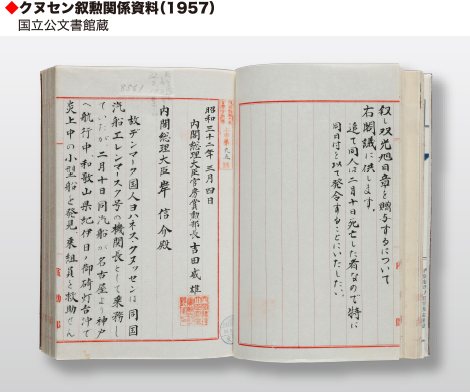 ◆クヌセン叙勲関係資料(1957)
国立公文書館蔵
叙し双光旭日章を贈与するについて
右閣議に供します。
追て同人は二月十日死亡した者なので特に
同日付を以て発令することにいたしたい。
昭和三十二年三月四日
内閣総理大臣官房賞勲部長 吉田威雄
内閣総理大臣 岸 信介殿
故デンマーク国人ヨハネス・クヌッセンは同国
汽船エレンマースク号の機関長として乗務し
ていたが、二月十日同汽船が名古屋より神戸
へ航行中和歌山県紀伊日ノ御碕灯台沖で
炎上中の小型船を発見、乗組員を救助せん